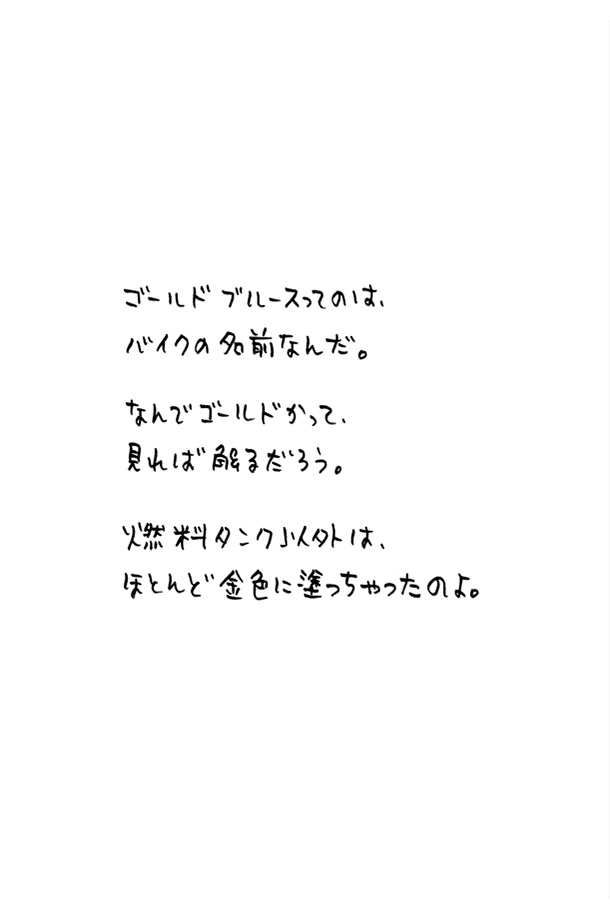 ゴールドブルースってのは、
バイクの名前なんだ。
なんでゴールドかって、
見れば解るだろう。
燃料タンク以外は、
ほとんど金色に塗っちゃったのよ。